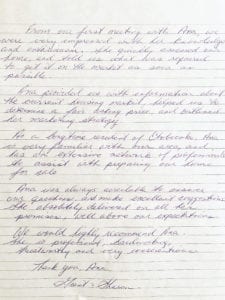 From our first meeting with Ana, we
were very impressed with her knowledge
and enthusiasm. She quickly assessed our
home, and told us what was required
to get it on the market as soon as
possible.
Ana provided us with information about
the current housing market, helped us to
determine a fair listing price, and outlined
her marketing strategy.
As a longtime resident of Etobicoke, Ana
is very familiar with this area and
has an extensive network of professionals
to assist with preparing our home
for sale.
Ana was always available to answer
our questions, and make excellent suggestions.
She absolutely delivered on all her
promises, well above our expectations.
We would highly recommend Ana.
She is professional, hardworking,
trustworthy and very conscientious.
Thank you, Ana